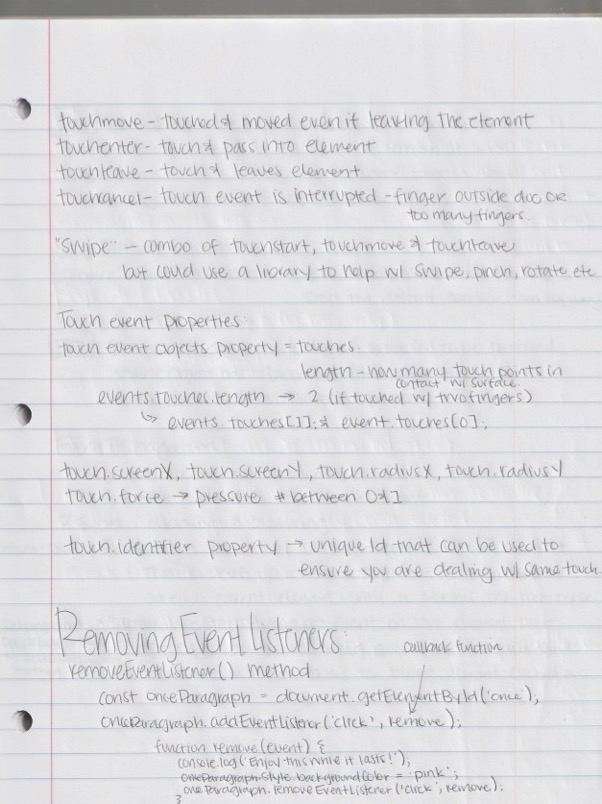 touchmove - touched & moved even if leaving the element
touchenter - touch & pass into element
touchleave - touch & leaves element
touchcancel - touch event is interrupted - finger outside doc or
too many fingers.
"Swipe" - combo of touchstart, touchmove & touchleave
but could use a library to help w/ swipe, pinch, rotate etc
Touch event properties:
touch event objects property = touches.
length - how many touch points in
contact w/ surface
events.touches.length → 2 (if touched w/ two fingers)
↳ events.touches[1]; & event.touches[0];
touch.screenX, touch.screenY, touch.radiusX, touch.radiusY
touch.force → pressure # between 0 & 1
touch.identifier property → unique Id that can be used to
ensure you are dealing w/ same touch.
Removing Event Listeners:
callback function
removeEventListener() method
const onceParagraph = document.getElementById('once');
onceParagraph.addEventListener('click', remove);
function remove(event) {
console.log('Enjoy this while it lasts!');
onceParagraph.style.backgroundColor = 'pink';
oneParagraph.removeEventListener('click', remove);
}